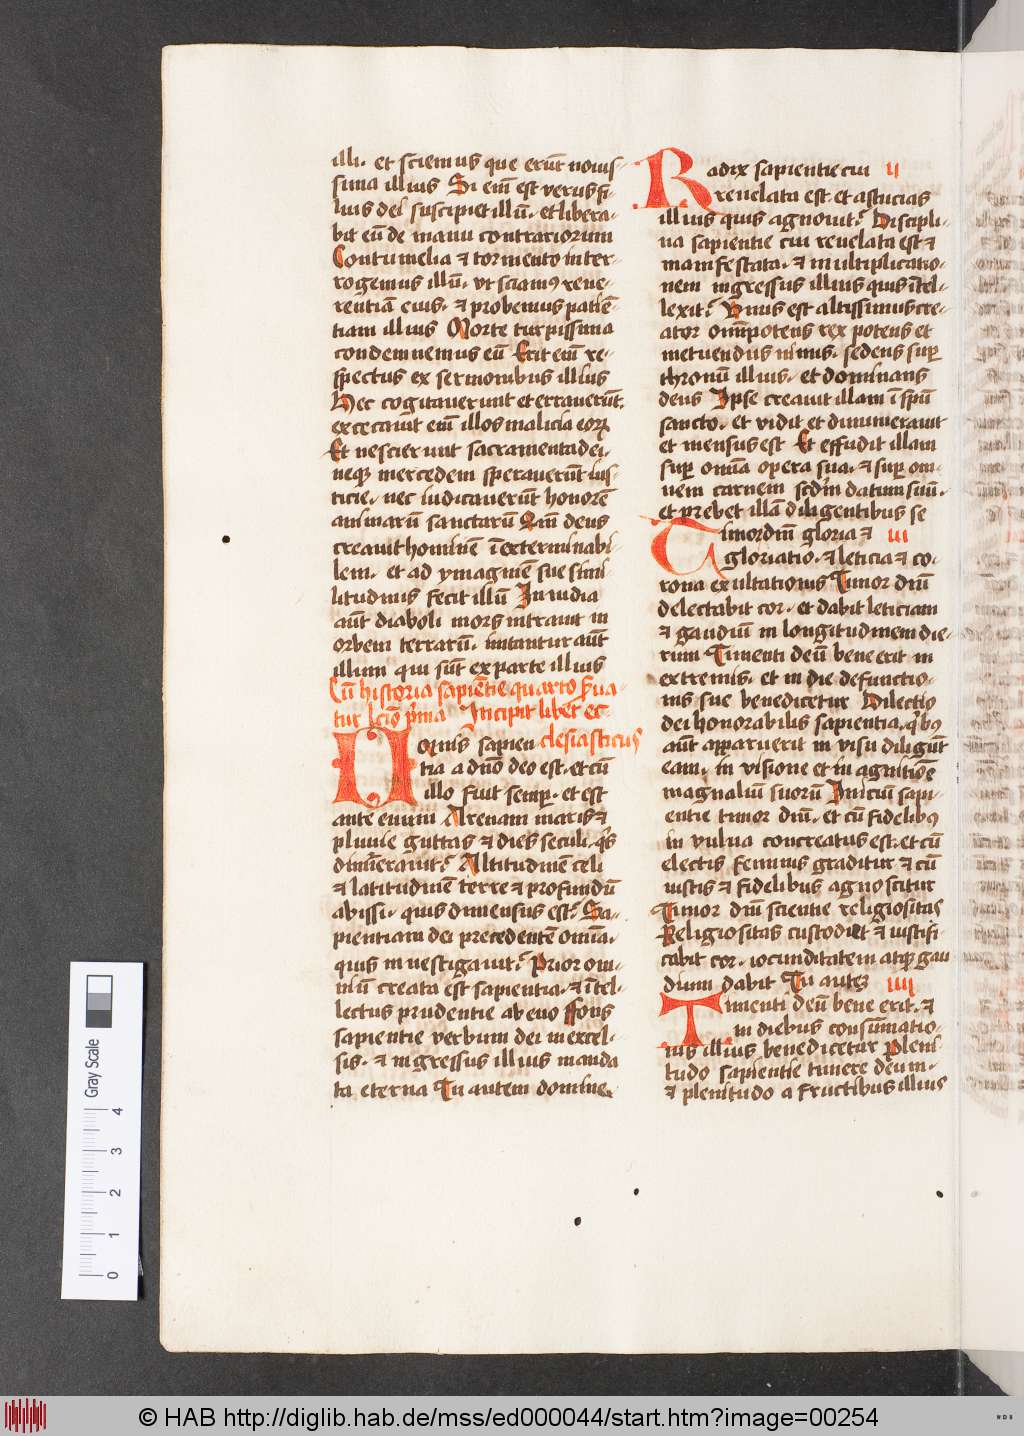 illi. et sciemus que erūt novis-
sima illius Si em̄ est verus fi-
lius dei suscipiet illū. et libera-
bit eū de manu contrariorum
Contumelia ⁊ tormento inter-
rogemus illū. vt sciamꝰ reue-
rentiā eius. ⁊ probemus patiē-
tiam illius Morte turpissima
condemnemus eū Erit em̄ re-
spectus ex sermonibus illius
Hec cogitauerunt et errauerūt.
excecauit em̄ illos malicia eoꝝ
Et nescierunt sacramenta dei.
neqꝫ mercedem sperauerūt ius-
ticie. nec iudicauerūt honorē
animarū sanctarū Qm̄ deus
creauit hominē īexterminabi-
lem. et ad ymaginē sue simi-
litudinis fecit illū Inuidia
aūt diaboli mors intrauit in
orbem terrarū. imitantur aūt
illum qui sūt ex parte illius
Cū historia sapiētie quarto
tur lc̄io p̄ma Incipit liber ec-
clesiasticus
Omnis sapien
tia a dn̄o deo est. et cū
illo fuit semꝑ. et est
ante euum Arenam maris ⁊
pluuie guttas ⁊ dies seculi. qͥs
dinūerauit? Altitudinē celi
⁊ latitudinē terre ⁊ profundū
abissi. quis dimensus est? Sa-
pientiam dei precedentē omīa.
quis inuestigauit? Prior om-
niū creata est sapientia. ⁊ ītel-
lectus prudentie ab euo Fons
sapientie verbum dei in excel-
sis. ⁊ ingressus illius manda
ta eterna Tu autem domine
Radix sapientie cui ij
reuelata est. et astucias
illius quis agnouit? Discipli-
na sapientie cui reuelata est ⁊
manifestata. ⁊ multiplicatio-
nem ingressus illius quis ītel-
lexit? Vnus est altissimus cre-
ator om̄ipotens rex potens et
metuendus nimis. sedens suꝑ
thronū illius. et dominans
deus Ipse creauit illam ī spū
sancto. et vidit et dinumerauit
et mensus est Et effudit illam
suꝑ omīa opera sua. ⁊ suꝑ om-
nem carnem scdm̄ datum suū.
et prebet illā diligentibus se
Timor dn̄i gloria ⁊ iij
gloriatio. ⁊ leticia ⁊ co-
rona exultationis Timor dn̄i
delectabit cor. et dabit leticiam
⁊ gaudiū in longitudinem die-
rum Timenti deū bene erit in
extremis. et in die defunctio-
nis sue benedicetur Dilectio
dei honorabilis sapientia. qͥbꝰ
aūt apparuerit in visu diligūt
eam. in visione et in agnitiōe
magnaliū suorū Iniciū sapi-
entie timor dn̄i. et cū fidelibꝰ
in vulua concreatus est. et cū
electis feminis graditur ⁊ cū
iustis ⁊ fidelibus agnoscitur
Timor dn̄i scientie religiositas
Religiositas custodiet ⁊ iustifi-
cabit cor. iocunditatem atqꝫ gau
dium dabit Tu autē iiij
Timenti deū bene erit. ⁊
in diebus consūmatio-
nis illius benedicetur Pleni-
tudo sapientie timere deum.
⁊ plenitudo a fructibus illius
Gray Scale
0 1 2 3 4
© HAB http://diglib.hab.de/mss/ed000044/start.htm?image=00254